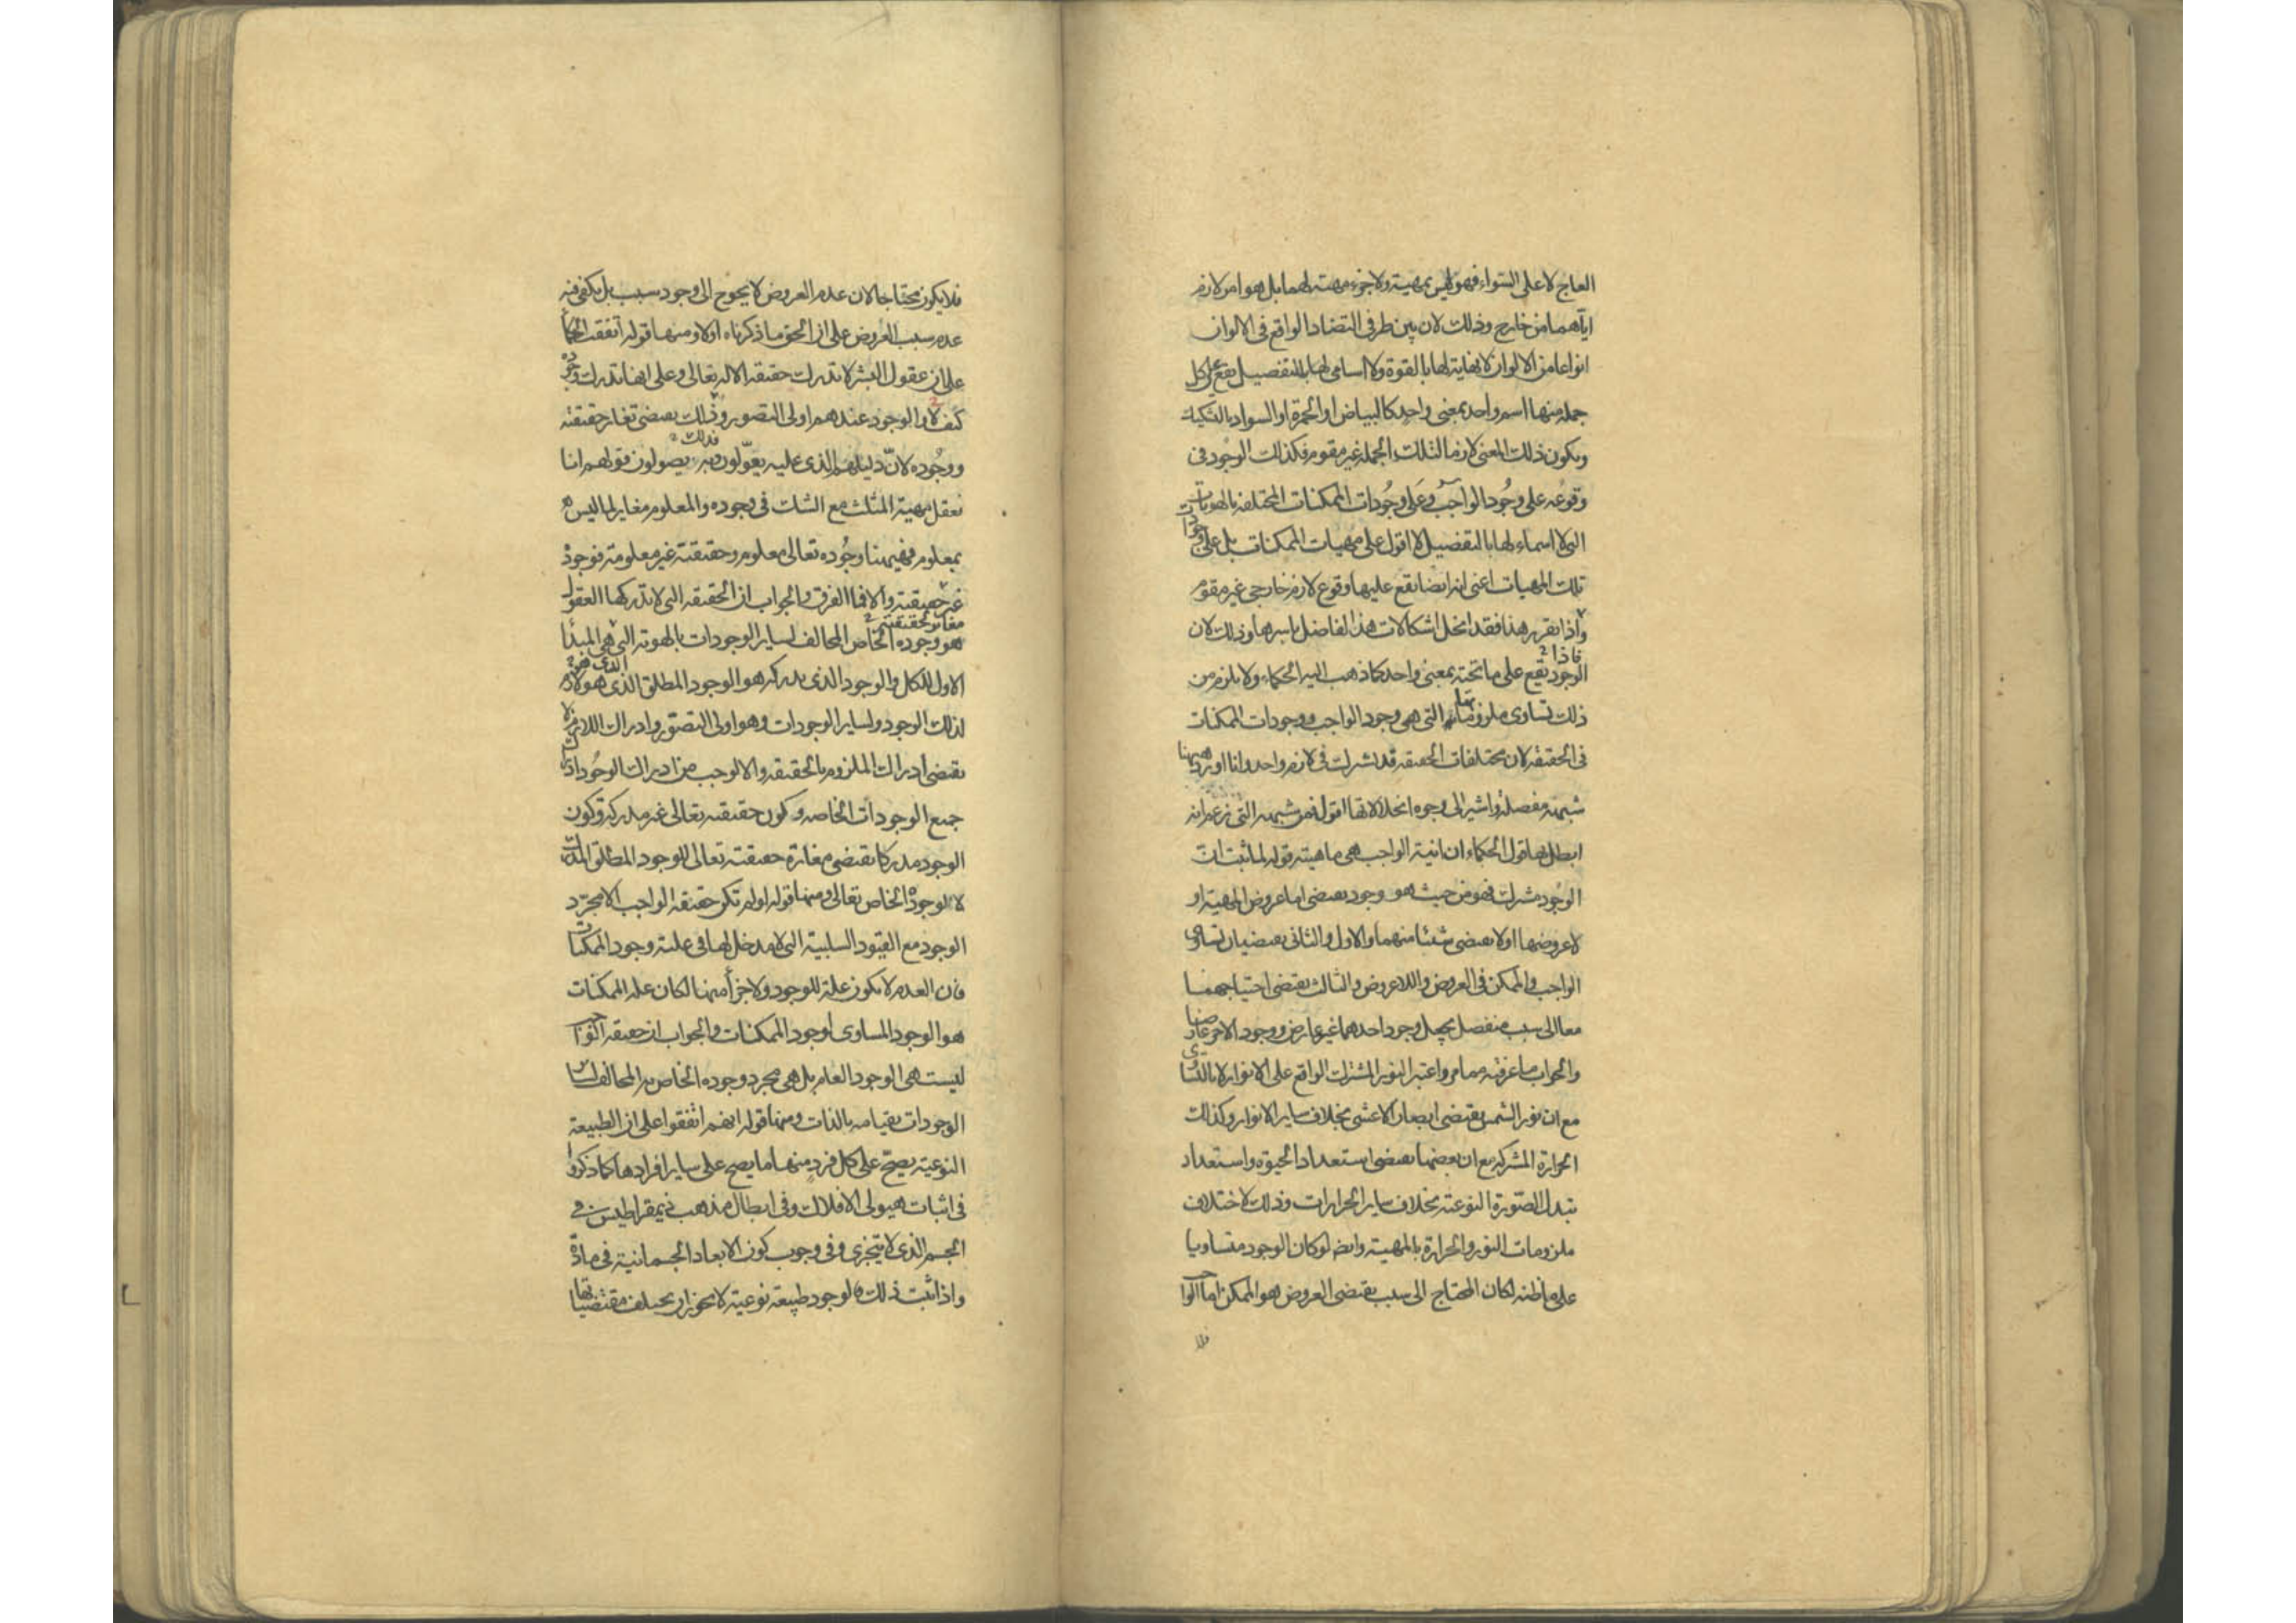 العاج لا على السواء فهو ليس بمهية ولا جزء مهية لهما بل هو امر لازم
اياهما من خارج وذلك لان بين طرفى التضاد الواقع فى الالوان
انواعا من الالوان لا نهاية لها بالقوة ولا اسامى لها بالتفصيل يقع على كل
جملة منها اسم واحد بمعنى واحد كالبياض او الحمرة او السواد بالتشكيك
ويكون ذلك المعنى لازما لتلك الجملة غير مقوم فكذلك الوجود فى
وقوعه على وجود الواجب وعلى وجودات الممكنات المختلفة بالهويات
التى لا اسماء لها بالتفصيل لا اقول على مهيات الممكنات بل على وجودات
تلك المهيات اعنى انه ايضا يقع عليها وقوع لازم خارجى غير مقوم
واذا تقرر هذا فقد انحل اشكالات هذا الفاضل باسرها وذلك لان
فاذا
الوجود يقع على ما تحته بمعنى واحد كما ذهب اليه الحكماء ولا يلزم من
ذلك تساوى ملزوماته التى هى وجود الواجب ووجودات الممكنات
فى الحقيقة لان مختلفات الحقيقة قد تشترك فى لازم واحد وانا اورد ههنا
شبهته مفصلة واشير الى وجوه انحلالاتها اقول فمن شبهته التى زعم انه
ابطل بها قول الحكماء ان انية الواجب هى ماهيته قوله لما ثبت ان
الوجود مشترك فهو من حيث هو وجود يقتضى اما عروض المهية او
لا عروضها او لا يقتضى شيئا منهما والاول والثانى يقتضيان تساوى
الواجب والممكن فى العروض واللاعروض والثالث يقتضى احتياجهما
معا الى سبب منفصل يجعل وجود احدهما غير عارض ووجود الاخر عارضا
والجواب ما عرفته مما مر واعتبر النور المشترك الواقع على الانوار لا بالتساوى
مع ان نور الشمس يقتضى ابصار الاعشى بخلاف ساير الانوار وكذلك
الحرارة المشتركة مع ان بعضها يقتضى استعداد الحيوة واستعداد
تبدل الصورة النوعية بخلاف ساير الحرارات وذلك لاختلاف
ملزومات النور والحرارة بالمهية وايضا لو كان الوجود متساويا
على ما ظنه لكان المحتاج الى سبب يقتضى العروض هو الممكن اما الواجب
فلا يكون محتاجا لان عدم العروض لا يحوج الى وجود سبب بل يكفى فيه
عدم سبب العروض على ان الحق ما ذكرناه اولا ومنها قوله اتفقت الحكماء
على ان عقول البشر لا تدرك حقيقة الاله تعالى وعلى انها تدرك وجوده
كيف لا والوجود عندهم اولى التصور وذلك يقتضى تغاير حقيقته
ووجوده لان دليلهم الذى عليه يعولون وبه يصولون قولهم انا
نعقل مهية المثلث مع الشك فى وجوده والمعلوم مغاير لما ليس
بمعلوم فههنا وجوده تعالى معلوم وحقيقته غير معلومة فوجوده
غير حقيقته والا فما الفرق والجواب ان الحقيقة التى لا تدركها العقول
مغاير لحقيقته
هو وجوده الخاص المخالف لساير الوجودات بالهوية التى هى المبدأ
الاول للكل والوجود الذى يدركه هو الوجود المطلق الذى هو لازم
لذلك الوجود ولساير الوجودات وهو اولى التصور وادراك اللازم لا
يقتضى ادراك الملزوم بالحقيقة والا لوجب من ادراك الوجود ادراك
جميع الوجودات الخاصة وكون حقيقته تعالى غير مدركة وكون
الوجود مدركا يقتضى مغايرة حقيقته تعالى للوجود المطلق المدرك
لا لوجوده الخاص تعالى ومنها قوله لو لم تكن حقيقة الواجب الا مجرد
الوجود مع القيود السلبية التى لا مدخل لها فى علية وجود الممكنات
فان العدم لا يكون علة للوجود ولا جزأ منها لكان علة الممكنات
هو الوجود المساوى لوجود الممكنات والجواب ان حقيقة الواجب
ليست هى الوجود العام بل هى مجرد وجوده الخاص به المخالف لساير
الوجودات بقيامه بالذات ومنها قوله انهم اتفقوا على ان الطبيعة
النوعية يصح على كل فرد منها ما يصح على ساير افرادها كما ذكروا
فى اثبات هيولى الافلاك وفى ابطال مذهب ذيمقراطيس فى
الجسم الذى لا يتجزى وفى وجوب كون الابعاد الجسمانية فى مادة
واذا ثبت ذلك فالوجود طبيعة نوعية لا يجوز ان يختلف مقتضياتها